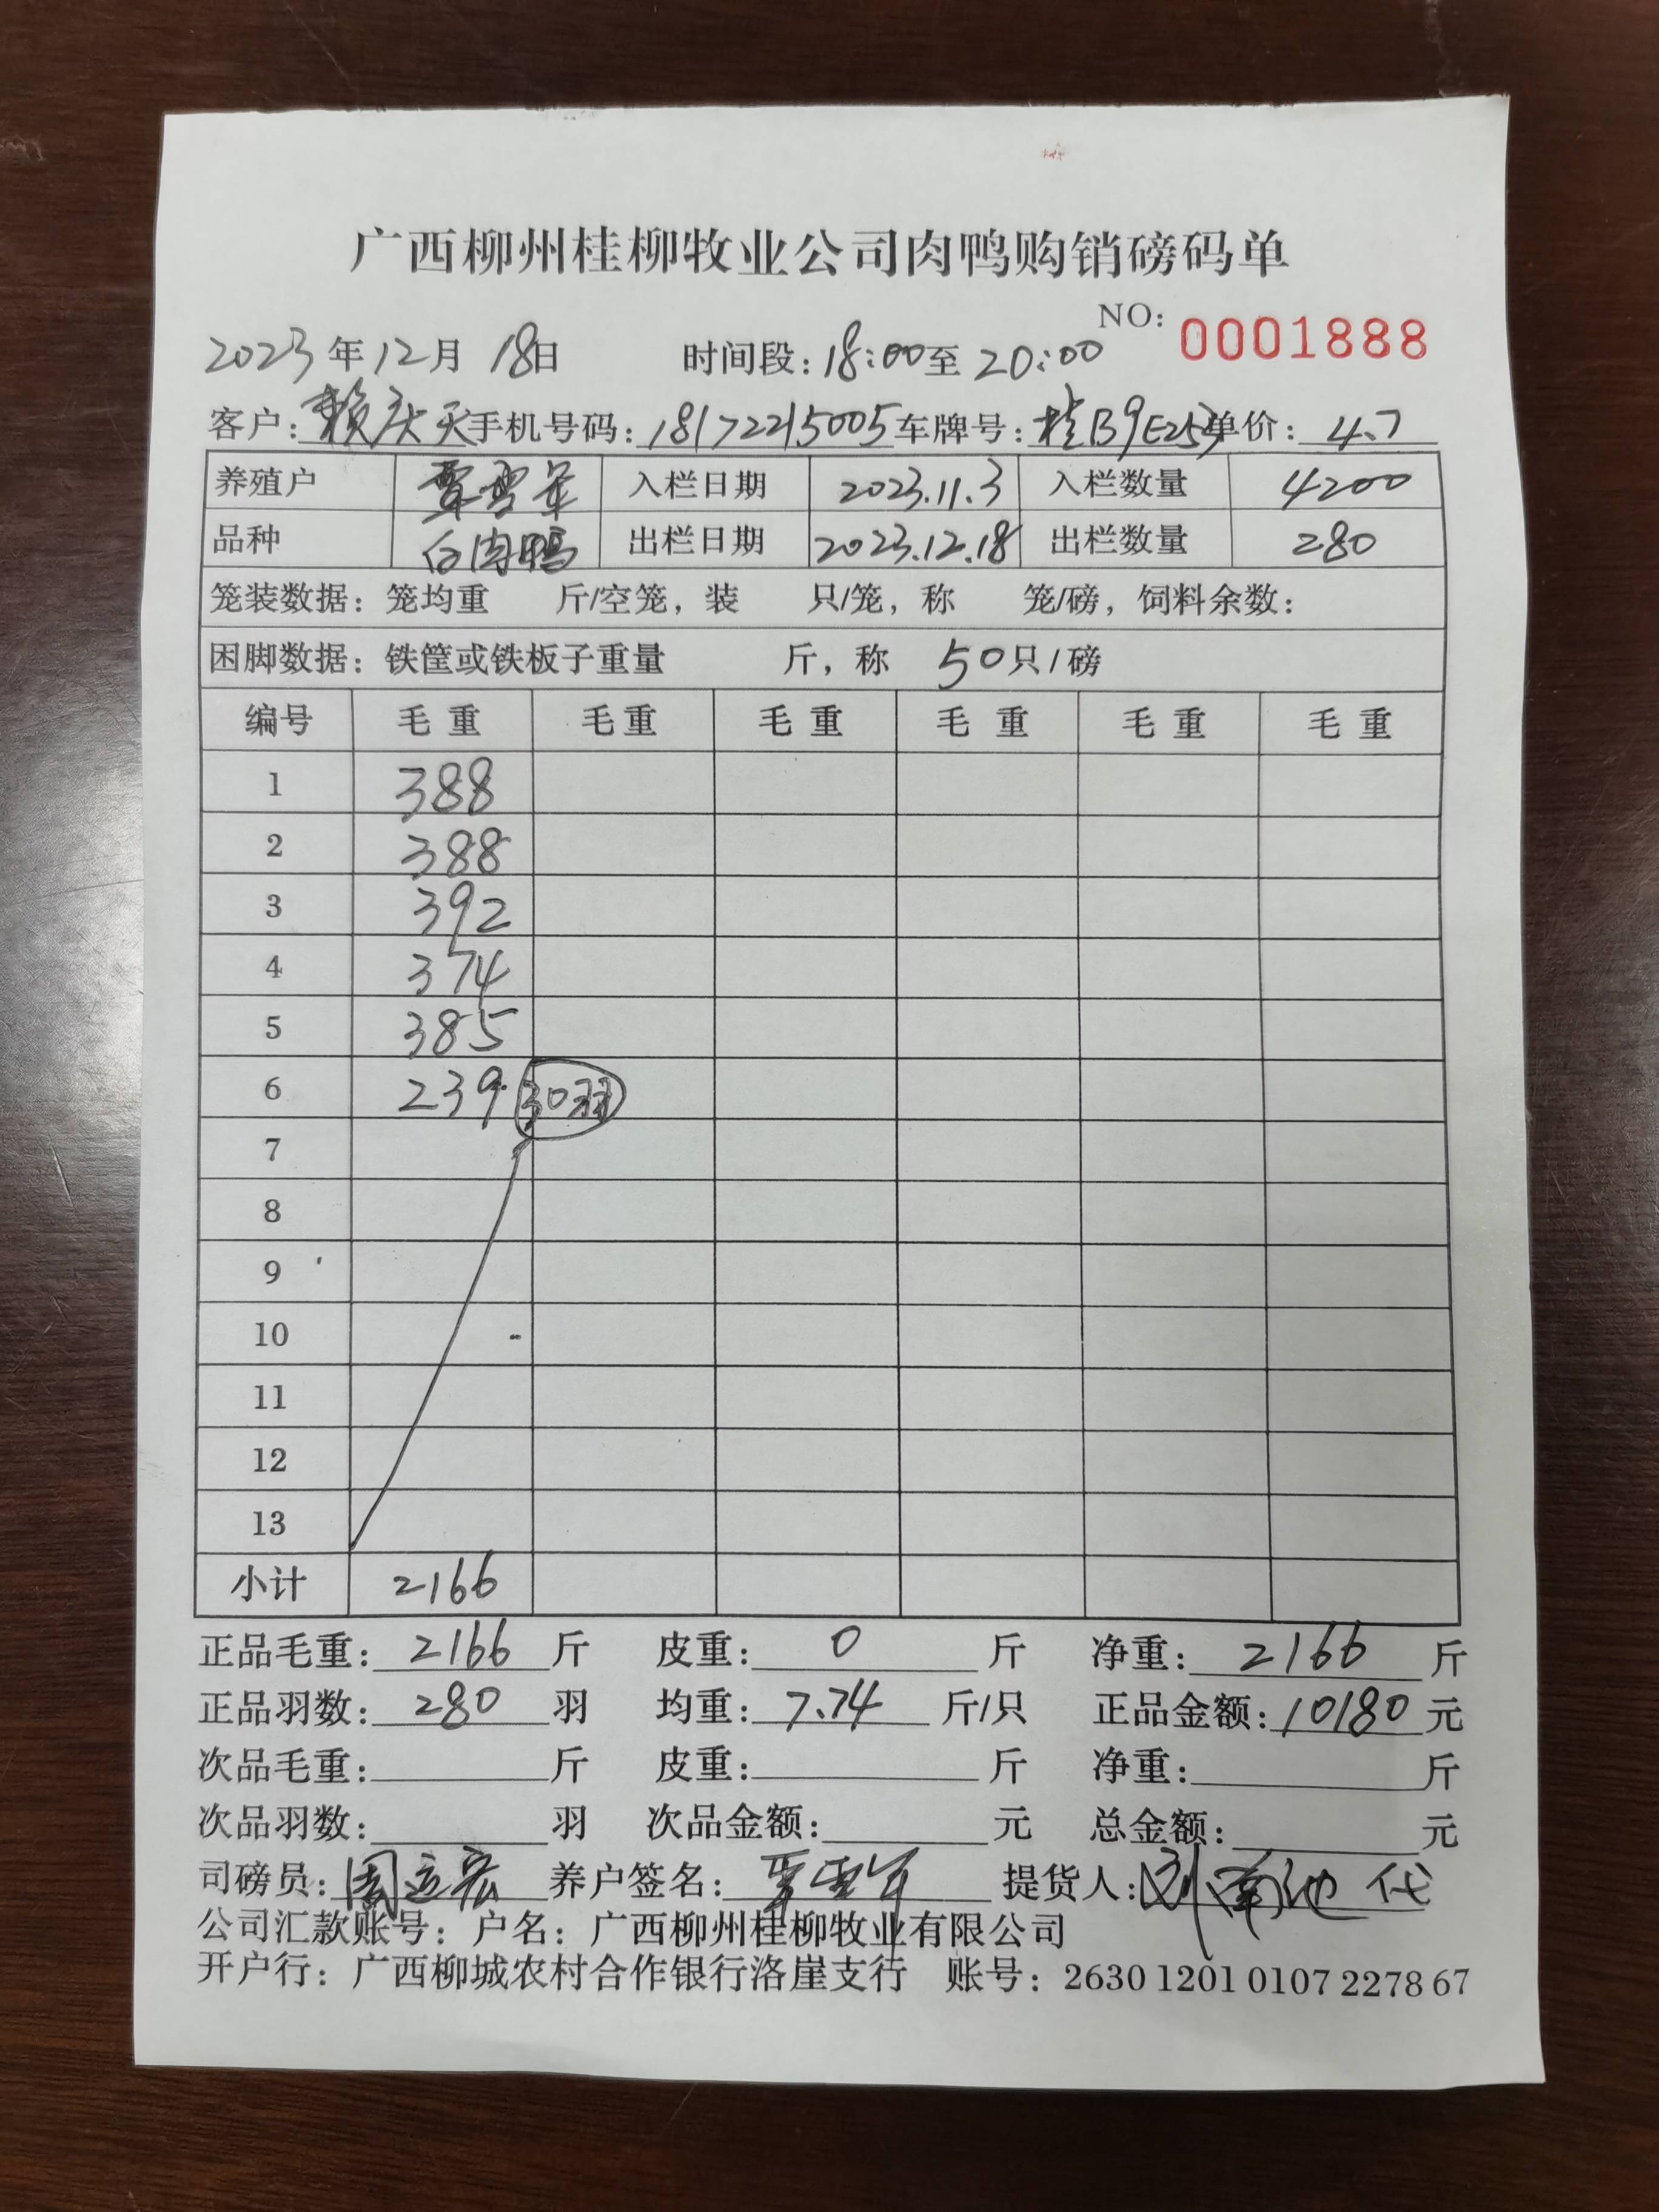 广西柳州桂柳牧业公司肉鸭购销磅码单
NO: 0001888
2023年12月18日 时间段:18:00至20:00
客户: 手机号码:18172215005 车牌号:桂B9E253 单价:4.7
养殖户 入栏日期 2023.11.3 入栏数量 4200
品种 白肉鸭 出栏日期 2023.12.18 出栏数量 280
笼装数据:笼均重 斤/空笼,装 只/笼,称 笼/磅,饲料余数:
困脚数据:铁筐或铁板子重量 斤,称 50只/磅
编号 毛重 毛重 毛重 毛重 毛重 毛重
1 388
2 388
3 392
4 374
5 385
6 239 30羽
7
8
9
10
11
12
13
小计 2166
正品毛重:2166斤 皮重:0斤 净重:2166斤
正品羽数:280羽 均重:7.74斤/只 正品金额:10180元
次品毛重: 斤 皮重: 斤 净重: 斤
次品羽数: 羽 次品金额: 元 总金额: 元
司磅员: 养户签名: 提货人: 代
公司汇款账号:户名:广西柳州桂柳牧业有限公司
开户行:广西柳城农村合作银行洛崖支行 账号:2630 1201 0107 2278 67